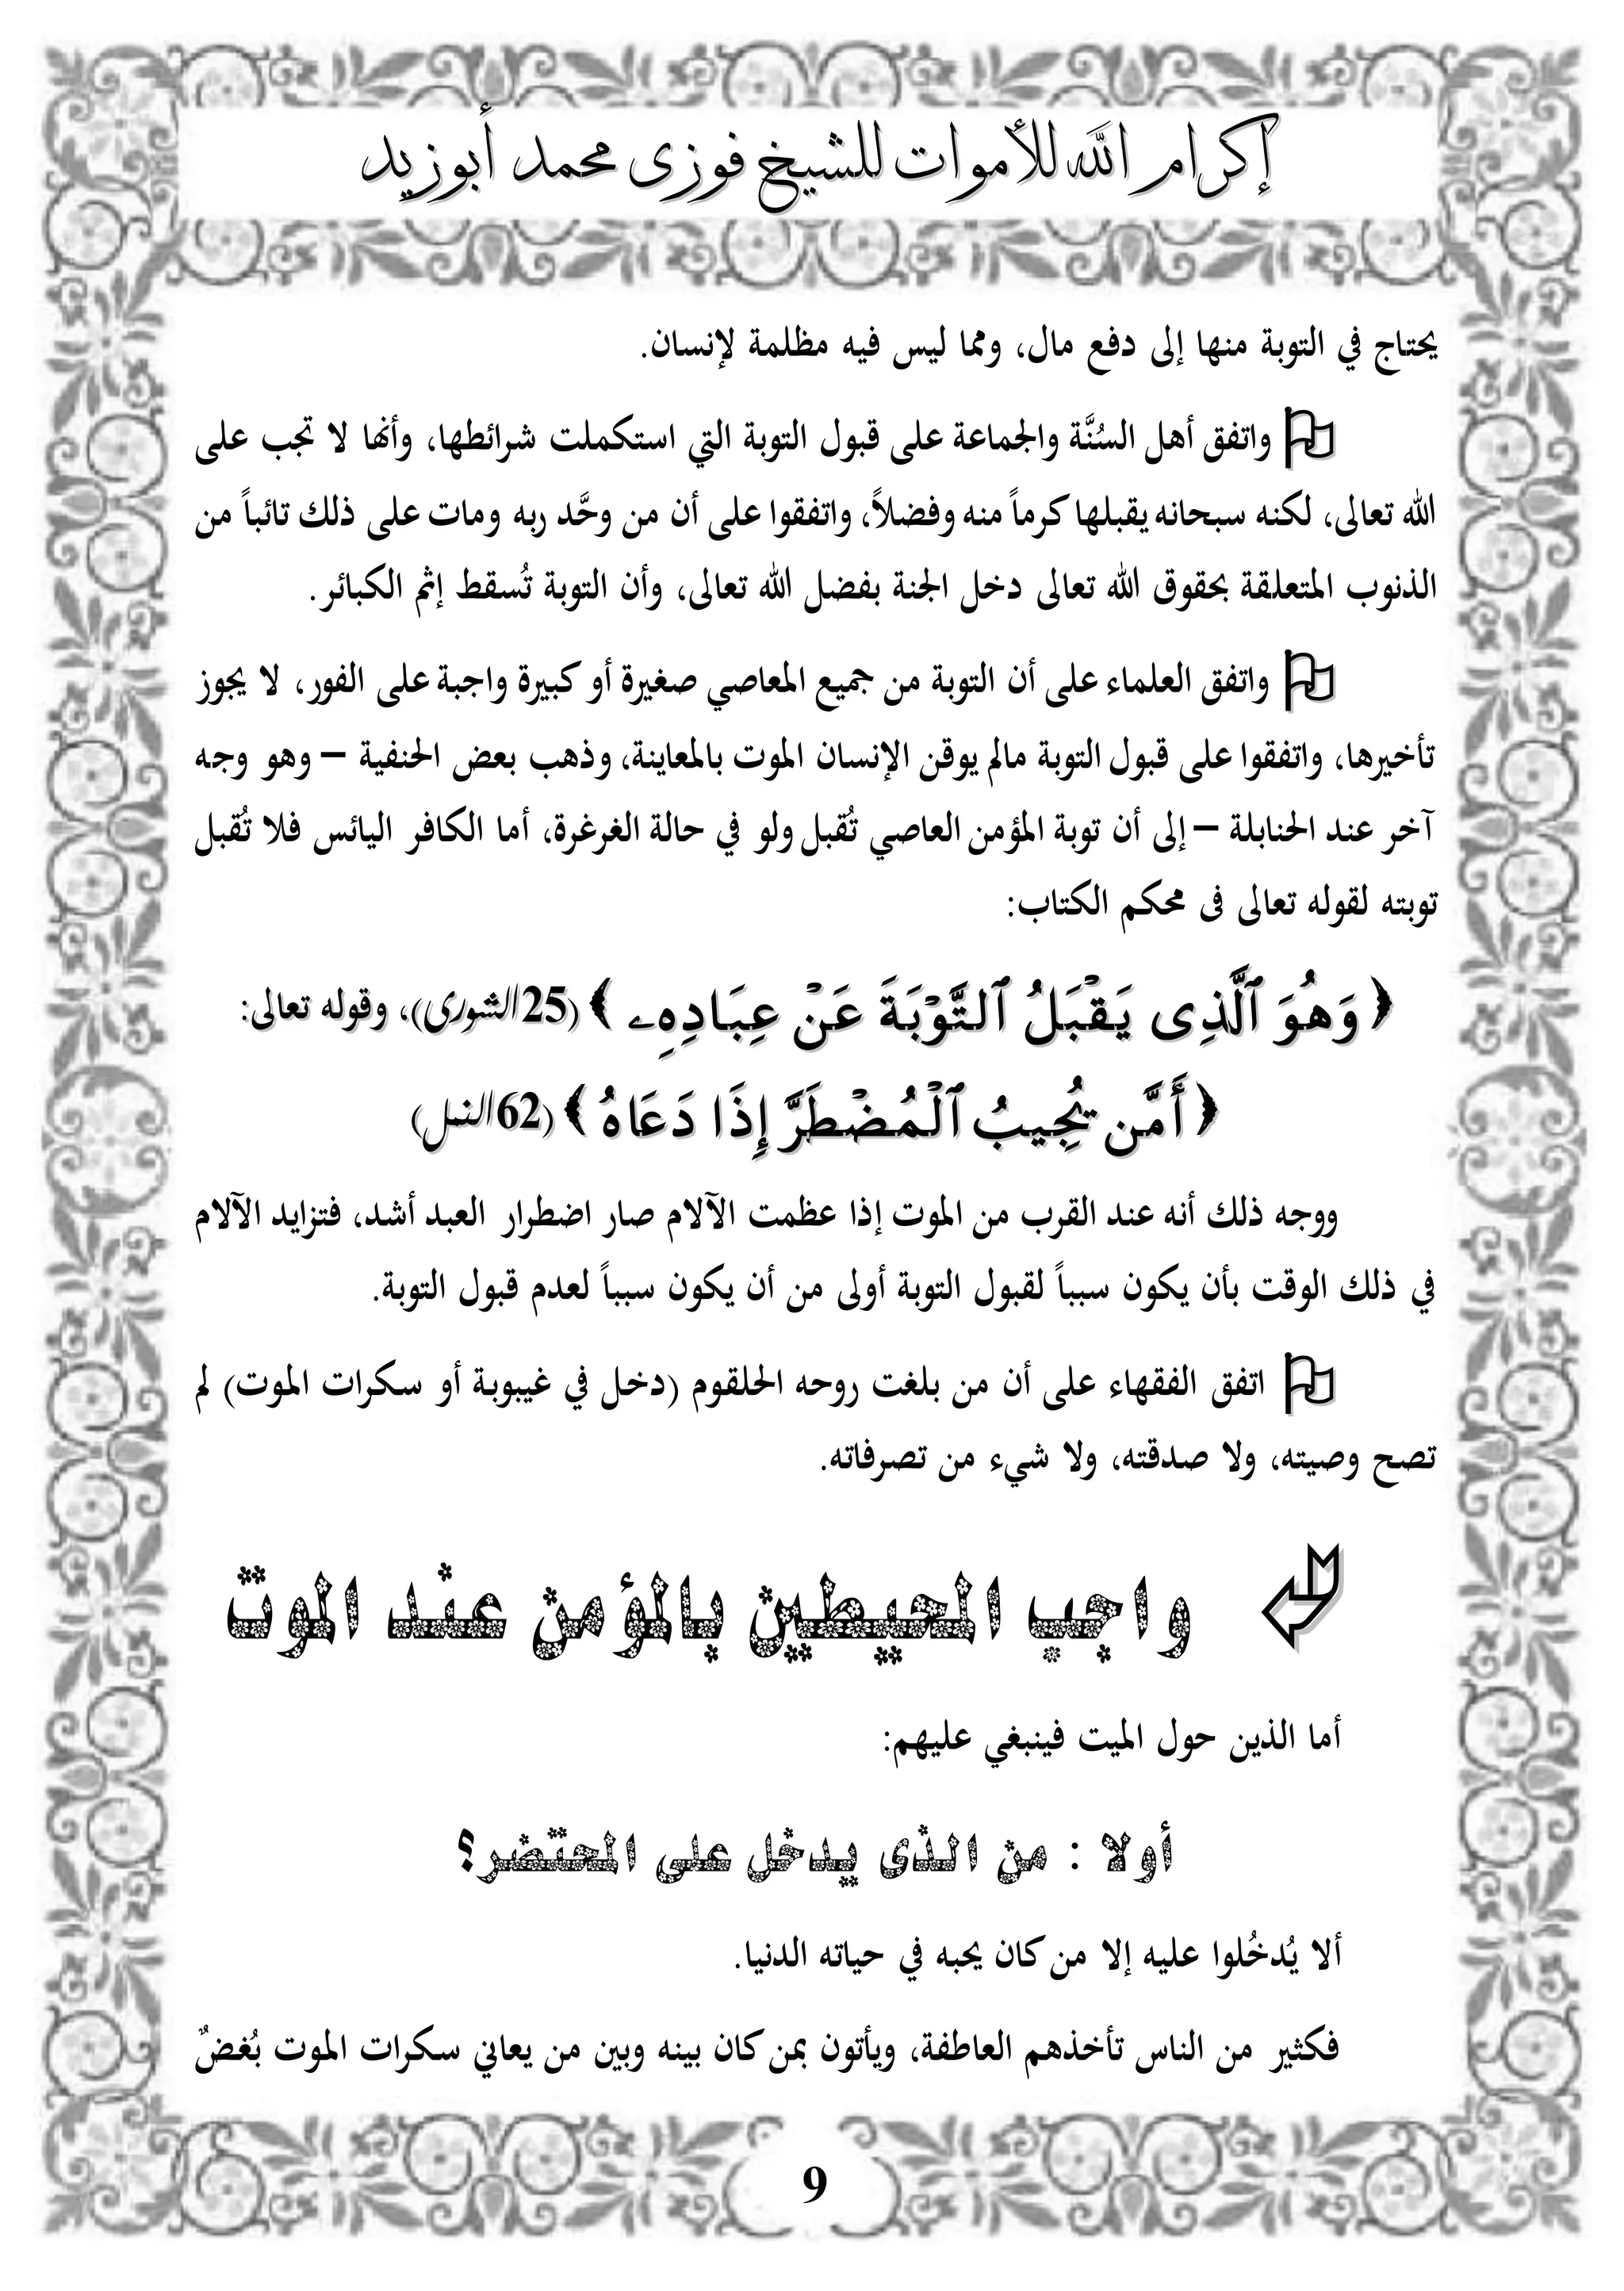 إكرام الله للأموات للشيخ فوزى محمد أبوزيد
يحتاج في التوبة منها إلى دفع مال، ومما ليس فيه مظلمة لإنسان.
واتفق أهل السُنَّة والجماعة على قبول التوبة التي استكملت شرائطها، وأنها لا تجب على
الله تعالى، لكنه سبحانه يقبلها كرماً منه وفضلاً، واتفقوا على أن من وحَّد ربه ومات على ذلك تائباً من
الذنوب المتعلقة بحقوق الله تعالى دخل الجنة بفضل الله تعالى، وأن التوبة تُسقط إثم الكبائر.
واتفق العلماء على أن التوبة من جميع المعاصي صغيرة أو كبيرة واجبة على الفور، لا يجوز
تأخيرها، واتفقوا على قبول التوبة مالم يوقن الإنسان الموت بالمعاينة، وذهب بعض الحنفية – وهو وجه
آخر عند الحنابلة – إلى أن توبة المؤمن العاصي تُقبل ولو في حالة الغرغرة، أما الكافر اليائس فلا تُقبل
توبته لقوله تعالى فى محكم الكتاب:
﴿ وَهُوَ ٱلَّذِى يَقْبَلُ ٱلتَّوْبَةَ عَنْ عِبَادِهِۦ ﴾ (25الشورى)، وقوله تعالى:
﴿ أَمَّن يُجِيبُ ٱلْمُضْطَرَّ إِذَا دَعَاهُ ﴾ (62النمل)
ووجه ذلك أنه عند القرب من الموت إذا عظمت الآلام صار اضطرار العبد أشد، فتزايد الآلام
في ذلك الوقت بأن يكون سبباً لقبول التوبة أولى من أن يكون سبباً لعدم قبول التوبة.
اتفق الفقهاء على أن من بلغت روحه الحلقوم (دخل في غيبوبة أو سكرات الموت) لم
تصح وصيته، ولا صدقته، ولا شيء من تصرفاته.
واجب المحيطين بالمؤمن عند الموت
أما الذين حول الميت فينبغي عليهم:
أولا : من الذى يدخل على المحتضر؟
ألا يُدخُلوا عليه إلا من كان يحبه في حياته الدنيا.
فكثير من الناس تأخذهم العاطفة، ويأتون بمن كان بينه وبين من يعاني سكرات الموت بُغضٌ
9